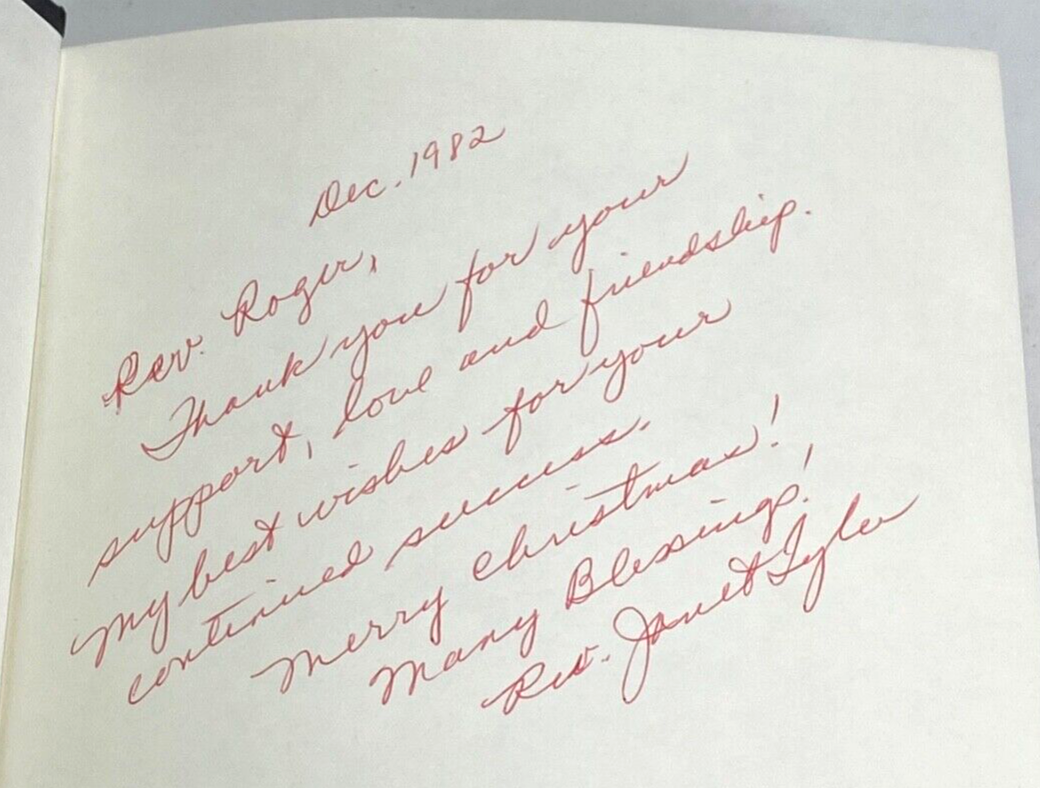 Dec. 1982
Rev. Roger,
Thank you for your
support, love and friendship.
My best wishes for your
continued success.
Merry Christmas!
Many Blessings!
Rev. Janet Tyler